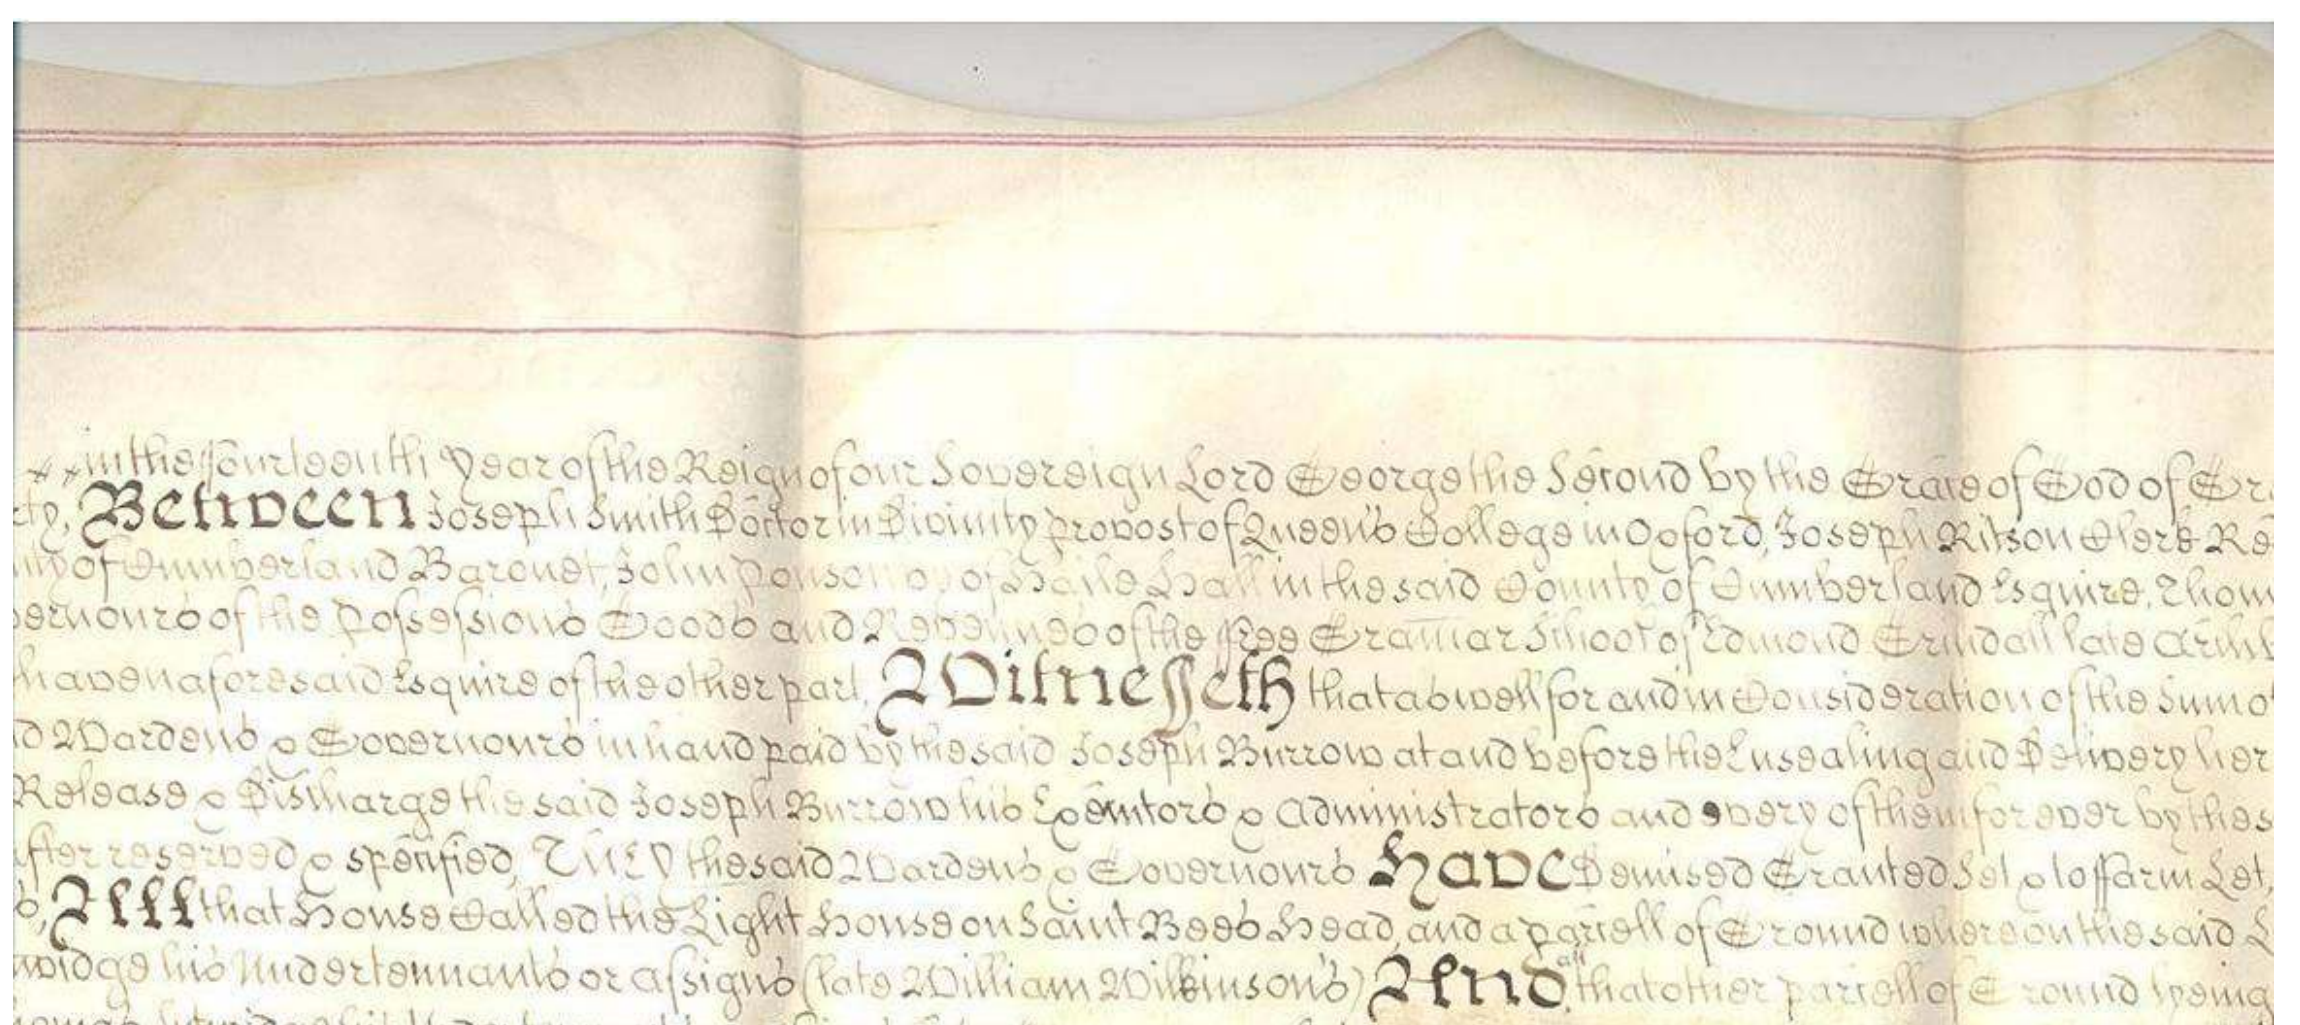 in the fourteenth Year of the Reign of our Sovereign Lord George the Second by the Grace of God of Gr
Between Joseph Smith Doctor in Divinity provost of Queen's College in Oxford, Joseph Ritson Clerk Re
of Cumberland Baronet, John Ponsonby of Haile Hall in the said County of Cumberland Esquire, Thom
vernours of the Possessions Goods and Revenues of the ffree Gramar School of Edmond Grindall late Archb
haven aforesaid Esquire of the other part, Witnesseth that as well for and in Consideration of the Sum o
d Wardens & Governours in hand paid by the said Joseph Burrow at and before the Ensealing and Delivery her
Release & Discharge the said Joseph Burrow his Executors & Administrators and every of them for ever by thes
after reserved & specified, They the said Wardens & Governours Have Demised Granted Set & to ffarm Let,
s, All that House Called the Light House on Saint Bees Head, and a parcell of Ground whereon the said L
widge his Undertennants or assigns (late William Wilkinson's) And all that other parcell of Ground lyeing